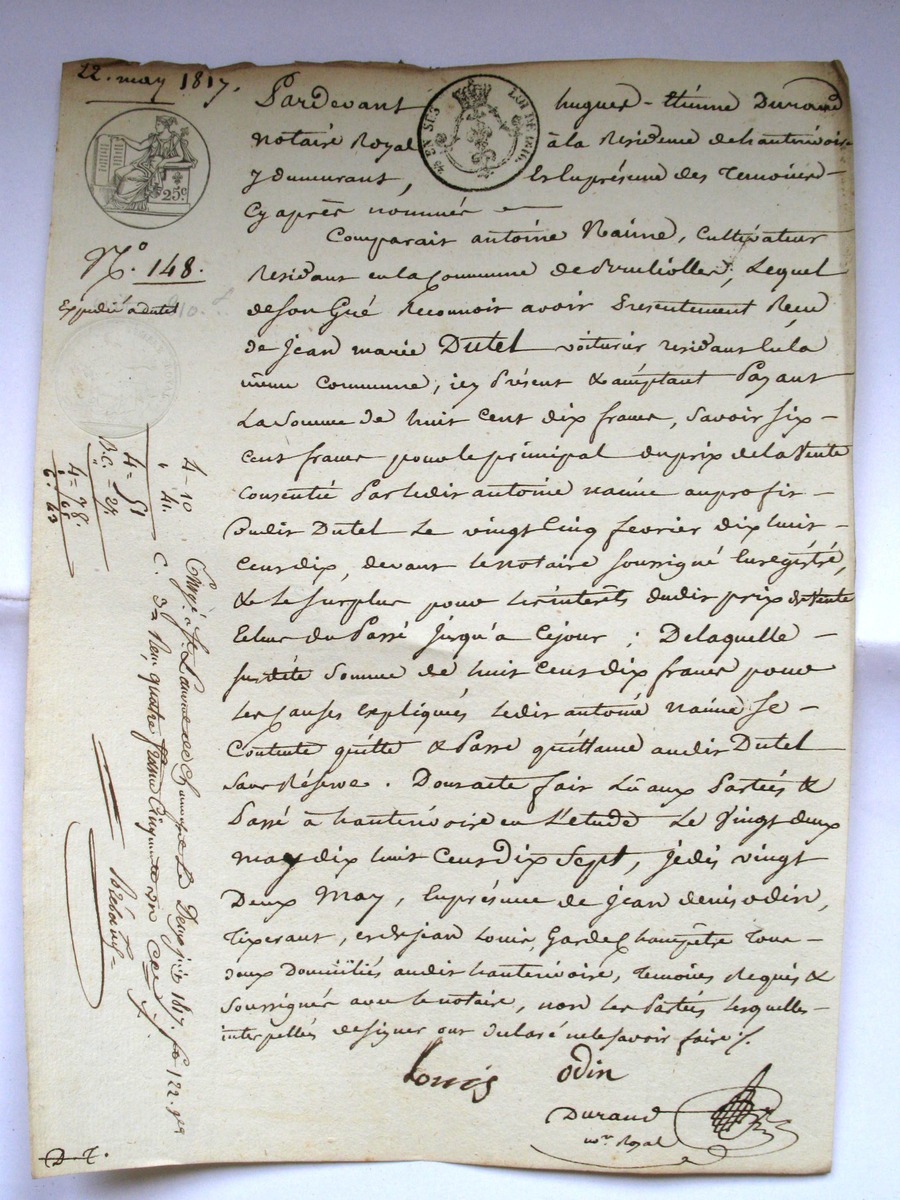 22. may 1817.
Pardevant hugues - Etienne Durand
Notaire Royal à la Residence de hauterivoire
y demeurant, & en présence des Temoins -
Cy après nommés
Comparait antoine Naime, Cultivateur
Residant en la Commune de Brullioller, Lequel
de son Gré Reconnoit avoir Presentement Recu
de Jean marie Dutel voiturier residant en la
même Commune, icy Présent & acceptant Payant
La Somme de huit Cent dix francs, Savoir Six -
Cent francs pour le principal du prix de la Vente
Consentie Par ledit antoine naime au profit -
dudit Dutel Le vingt Cinq fevrier dix huit -
Cent dix, devant le notaire Soussigné Enregistré,
& Le Surplus pour les interets dudit prix de Vente
du Passé Jusqu'a Cejour ; De laquelle -
susdite Somme de huit Cent dix francs pour
les Causes Expliqués ledit antoine naime Se -
Contente quitte & Passe quittance audit Dutel
Sans Réserve. Dont acte fait Lu aux Parties &
Passé à hauterivoire en L'etude Le Vingt deux
may dix huit Cent Dix Sept, je dis vingt
Deux May, En présence de Jean denis odin,
Tixerant, et de jean Louis, Garde Champêtre Tous -
deux Domiciliés audit hauterivoire, Temoins Requis &
Soussignés avec le notaire, non les Parties lesquelles -
interpellés de signer ont declaré ne le Savoir faire /.
Louis odin
Durand
no.re Royal
25c.
EN SUS
LOI DE 1816.
N.o 148.
Expedié a dutel
4 = 51
B.C. = 27
4 = 78
65
4 - 10
41
Le Deux juin 1817. fo 122.
C. 3 Reçu quatre francs Cinquante un Ces
D. T.